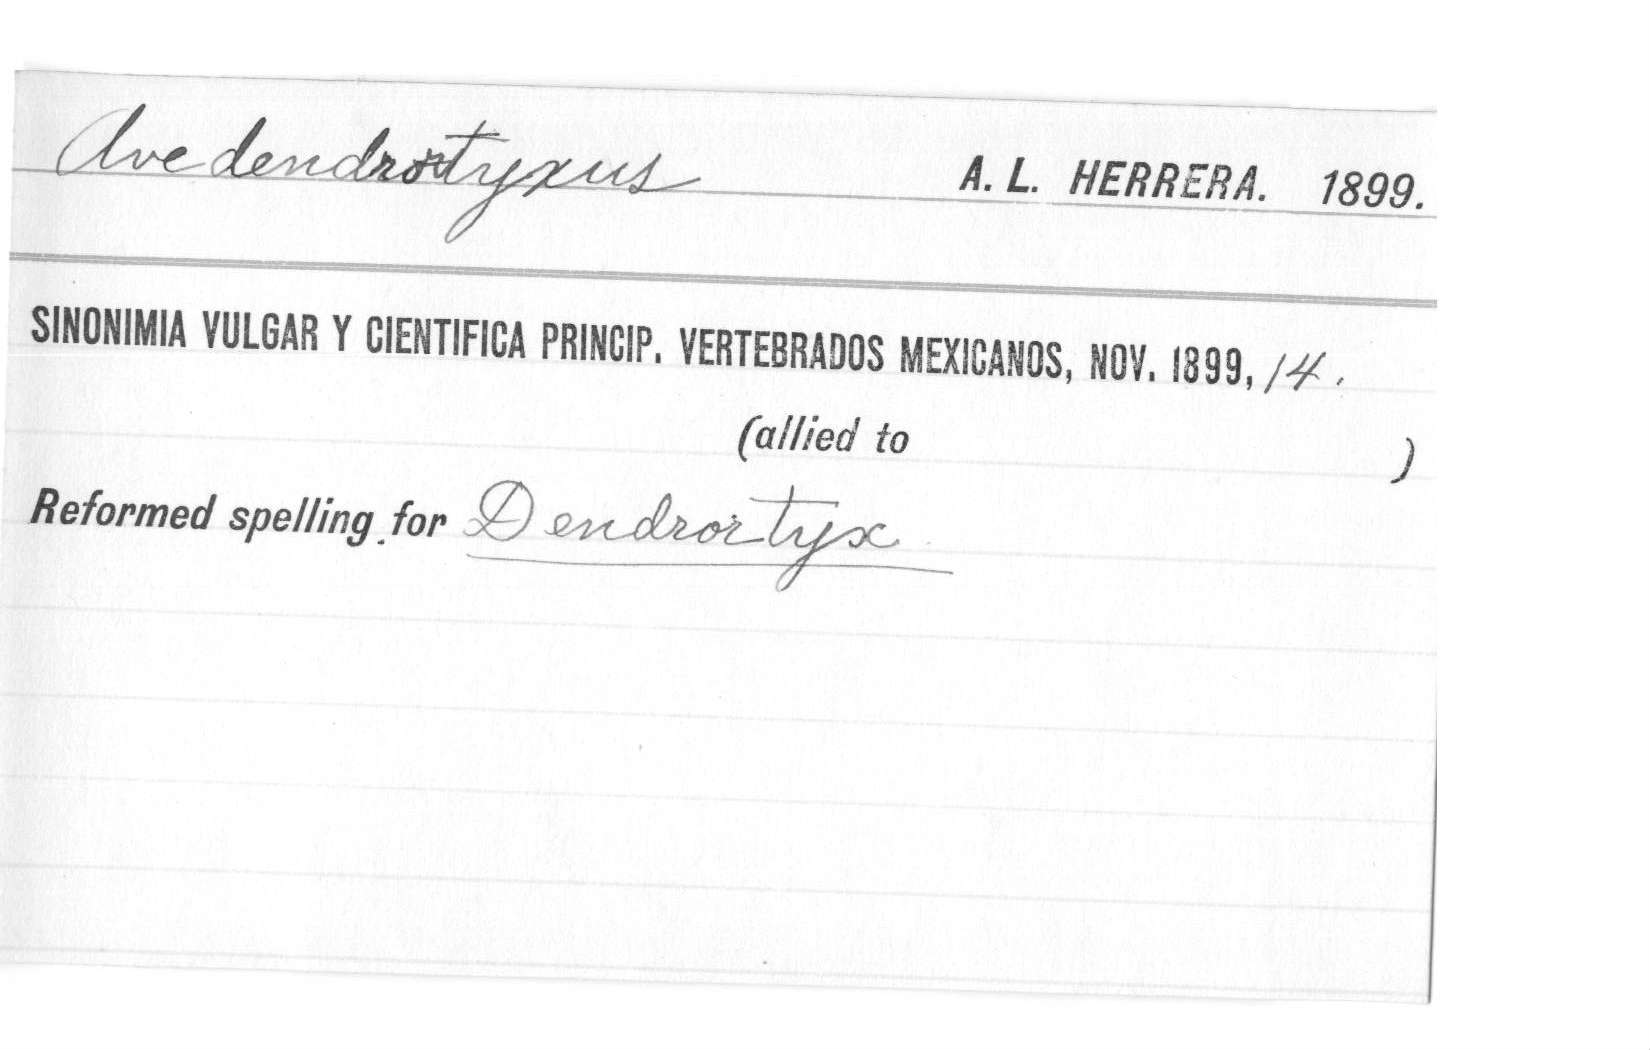 Avedendrortyxus A. L. HERRERA. 1899.
SINONIMIA VULGAR Y CIENTIFICA PRINCIP. VERTEBRADOS MEXICANOS, NOV. 1899, 14.
(allied to )
Reformed spelling for Dendrortyx